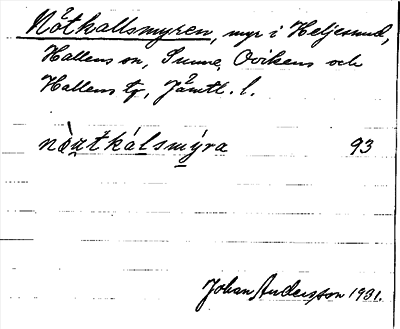 Nötkallsmyren, myr i Heljesund,
Hallens sn, Sunne, Ovikens och
Hallens tg, Jämtl. l.
nö̀ztkálsmýra 93
Johan Andersson 1931.